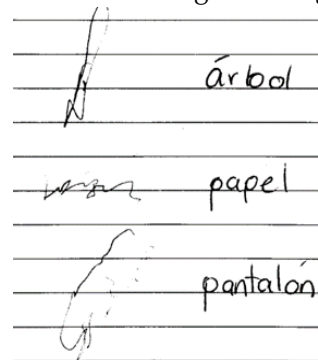 árbol
papel
pantalón